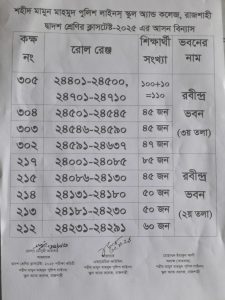 শহীদ মামুন মাহমুদ পুলিশ লাইনস্ স্কুল অ্যান্ড কলেজ, রাজশাহী
দ্বাদশ শ্রেণির ক্লাসটেষ্ট-২০২৫ এর আসন বিন্যাস
কক্ষ নং রোল রেঞ্জ শিক্ষার্থী সংখ্যা ভবনের নাম
৩০৫ ২৪৪০১-২৪৫০০, ২৪৭০১-২৪৭১০ ১০০+১০ =১১০
৩০৪ ২৪৫০১-২৪৫৪৫ ৪৫ জন
৩০৩ ২৪৫৪৬-২৪৫৯০ ৪৫ জন
৩০২ ২৪৫৯১-২৪৬৩৭ ৪৭ জন
রবীন্দ্র ভবন (৩য় তলা)
২১৭ ২৪০০১-২৪০৮৫ ৮৫ জন
২১৫ ২৪০৮৬-২৪১৩০ ৪৫ জন
২১৪ ২৪১৩১-২৪১৮০ ৫০ জন
২১৩ ২৪১৮১-২৪২৩০ ৫০ জন
২১২ ২৪২৩১-২৪২৯১ ৬০ জন
রবীন্দ্র ভবন (২য় তলা)